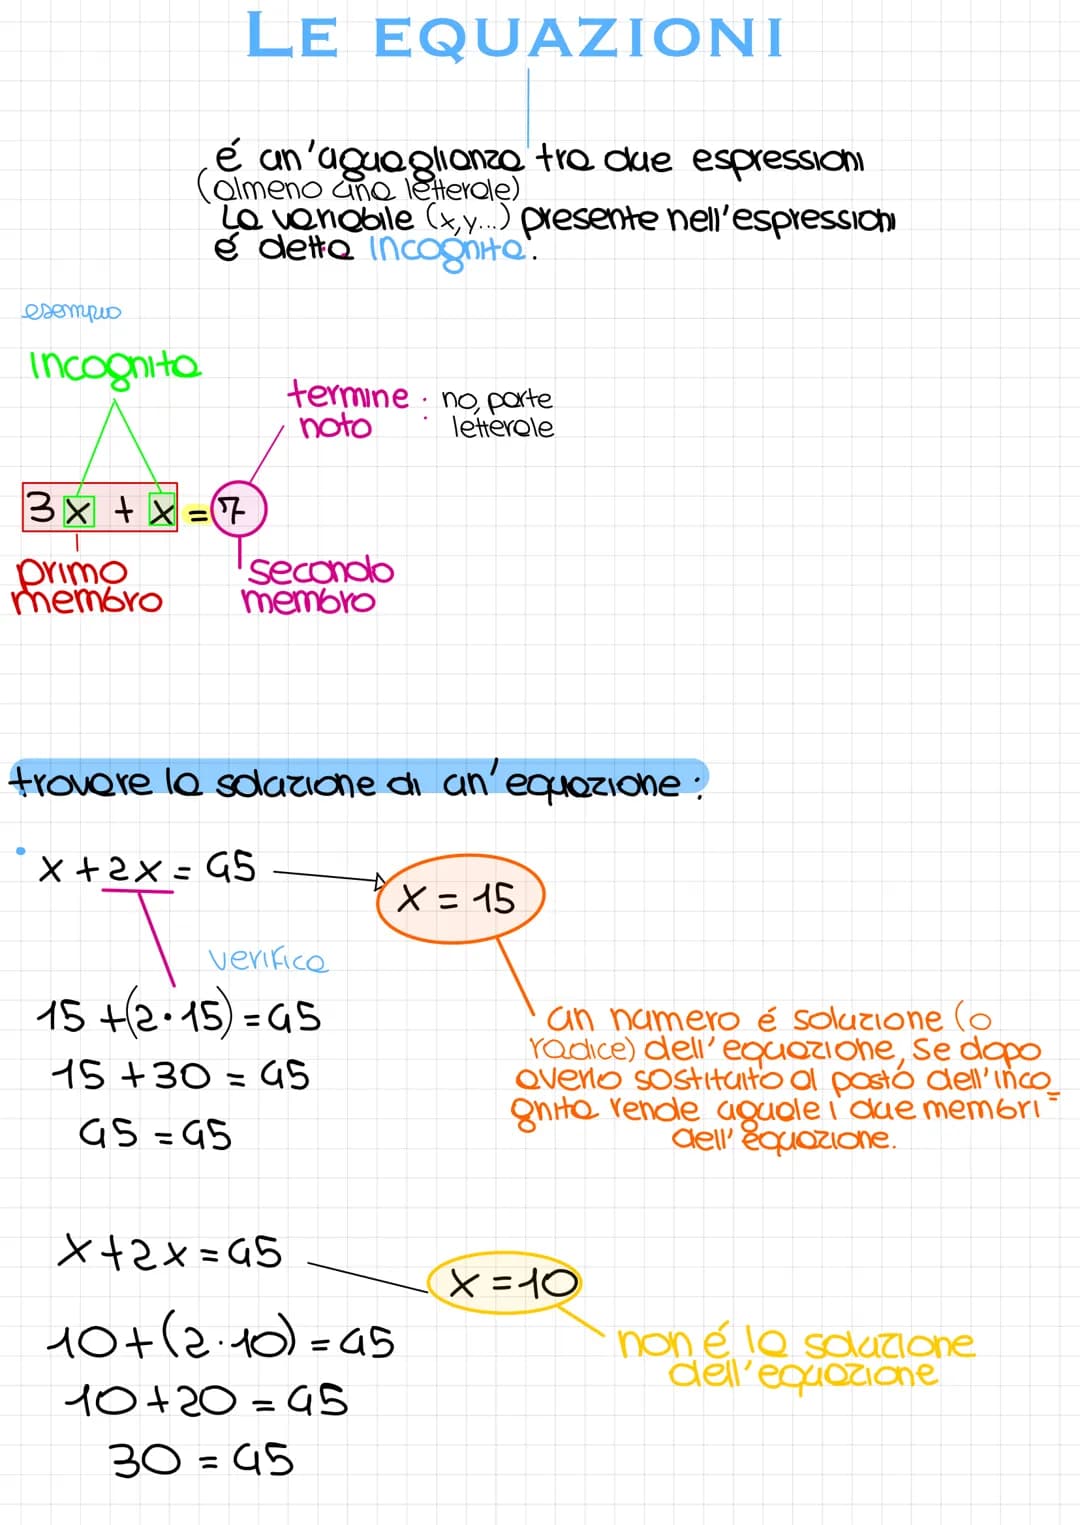 LE EQUAZIONI
é un'aguaglianza tra due espressioni
(almeno una letterale)
La variabile (x,y...) presente nell'espressioni
é detta incognita.
esempio
incognita
termine : no, parte
noto letterale
3x + x = 7
primo
membro
secondo
membro
trovare la soluzione di un'equazione:
x + 2x = 45
x = 15
verifica
15 + (2·15) = 45
15 + 30 = 45
45 = 45
un numero é soluzione (o
radice) dell'equazione, se dopo
averlo sostituito al posto dell'inco
gnita rende aguale i due membri =
dell'equazione.
x + 2x = 45
x = 10
10 + (2·10) = 45
10 + 20 = 45
30 = 45
non é la soluzione
dell'equazione